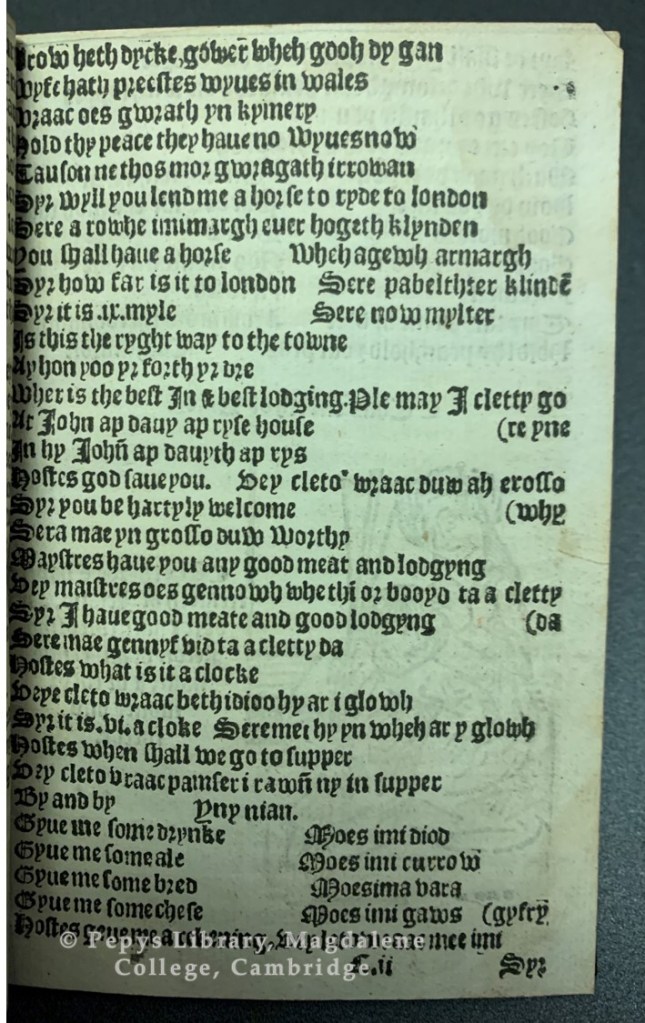 Trow heth dycke, gower wheh gooh dy gan
Wyfe hath preestes wyues in wales
Wraac oes gwrath yn kymery
Hold thy peace they haue no Wyues now
Tauson ne thos mor gwragath irrowan
Syr wyll you lend me a horse to ryde to london
Sere a rowhe imimargh euer hogeth klynden
You shall haue a horse Wheh agewh armargh
Syr how far is it to london Sere pabelthter klindē
Syr it is .ix. myle Sere now mylter
Is this the ryght way to the towne
Ay hon yoo yr forth yr dre
Wher is the best In & best lodging. Ple may I cletty go
At John ap dauy ap ryse house (re yne
In hy Johñ ap dauyth ap rys
Hostes god saue you. Dey cleto wraac duw ah erosso
Syr you be hartyly welcome (why
Sera mae yn grosso duw Worthy
Maystres haue you any good meat and lodgyng
Dey maistres oes gennowh whe thi or booyd ta a cletty
Syr I haue good meate and good lodgyng (da
Sere mae gennyf vid ta a cletty da
Hostes what is it a clocke
Deye cleto wraac beth idioo hy ar i glowh
Syr it is .vi. a cloke Sere mei hy yn wheh ar y glowh
Hostes when shall we go to supper
Dey cleto vraac pamser i rawñ ny in supper
By and by Yny nian.
Gyue me some drynke Moes imi diod
Gyue me some ale Moes imi currow
Gyue me some bred Moes ima vara
Gyue me some chese Moes imi gaws (gyfry
Hostes geue me a rekening, imi
F.ii Syr
© Pepys Library, Magdalene
College, Cambridge